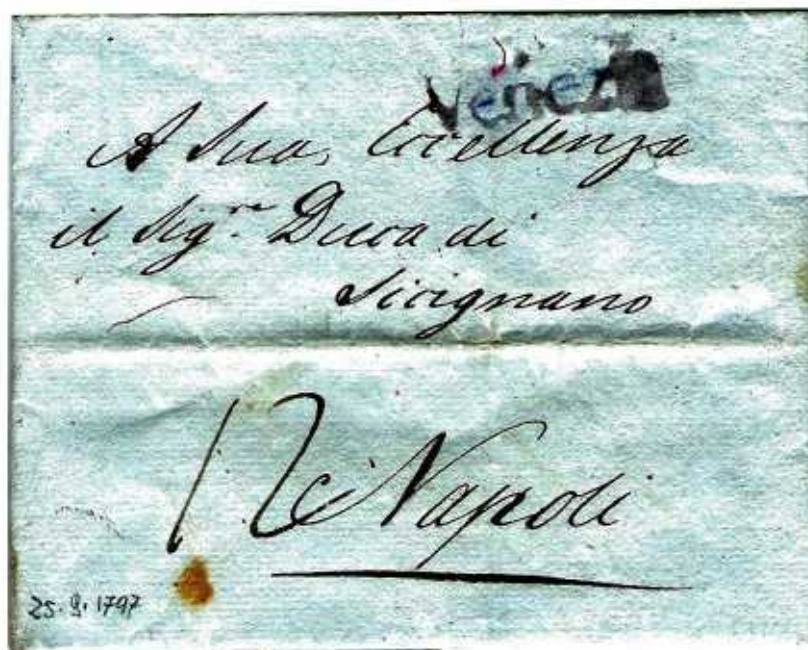 Venezia
A Sua, Eccellenza
il Sig.re Duca di
Sicignano
12 Napoli
25.9.1797